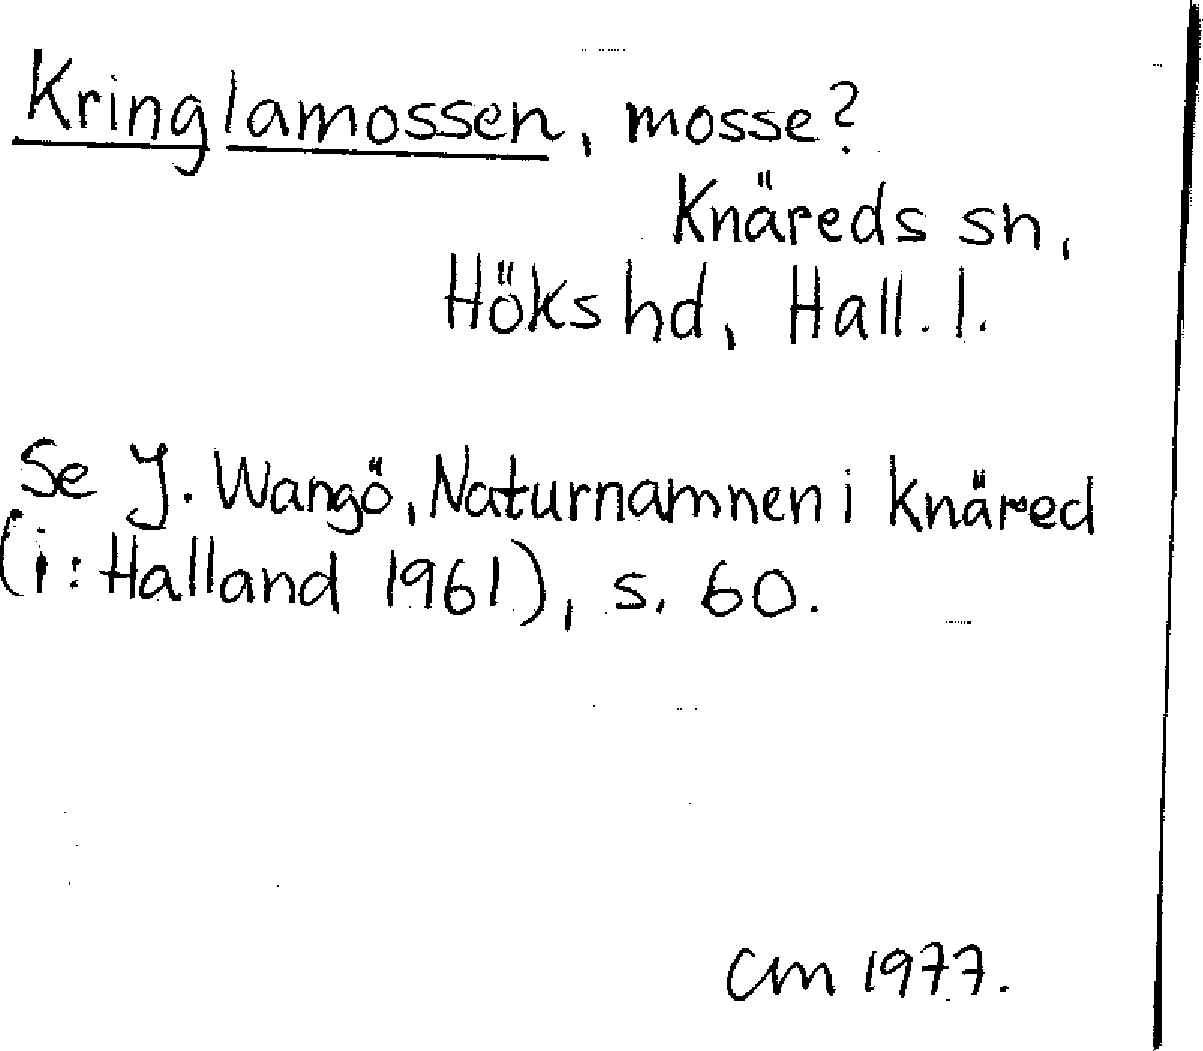 Kringlamossen, mosse?
Knäreds sn,
Höks hd, Hall. l.
Se J. Wangö, Naturnamnen i Knäred
(i: Halland 1961), s. 60.
CM 1977.